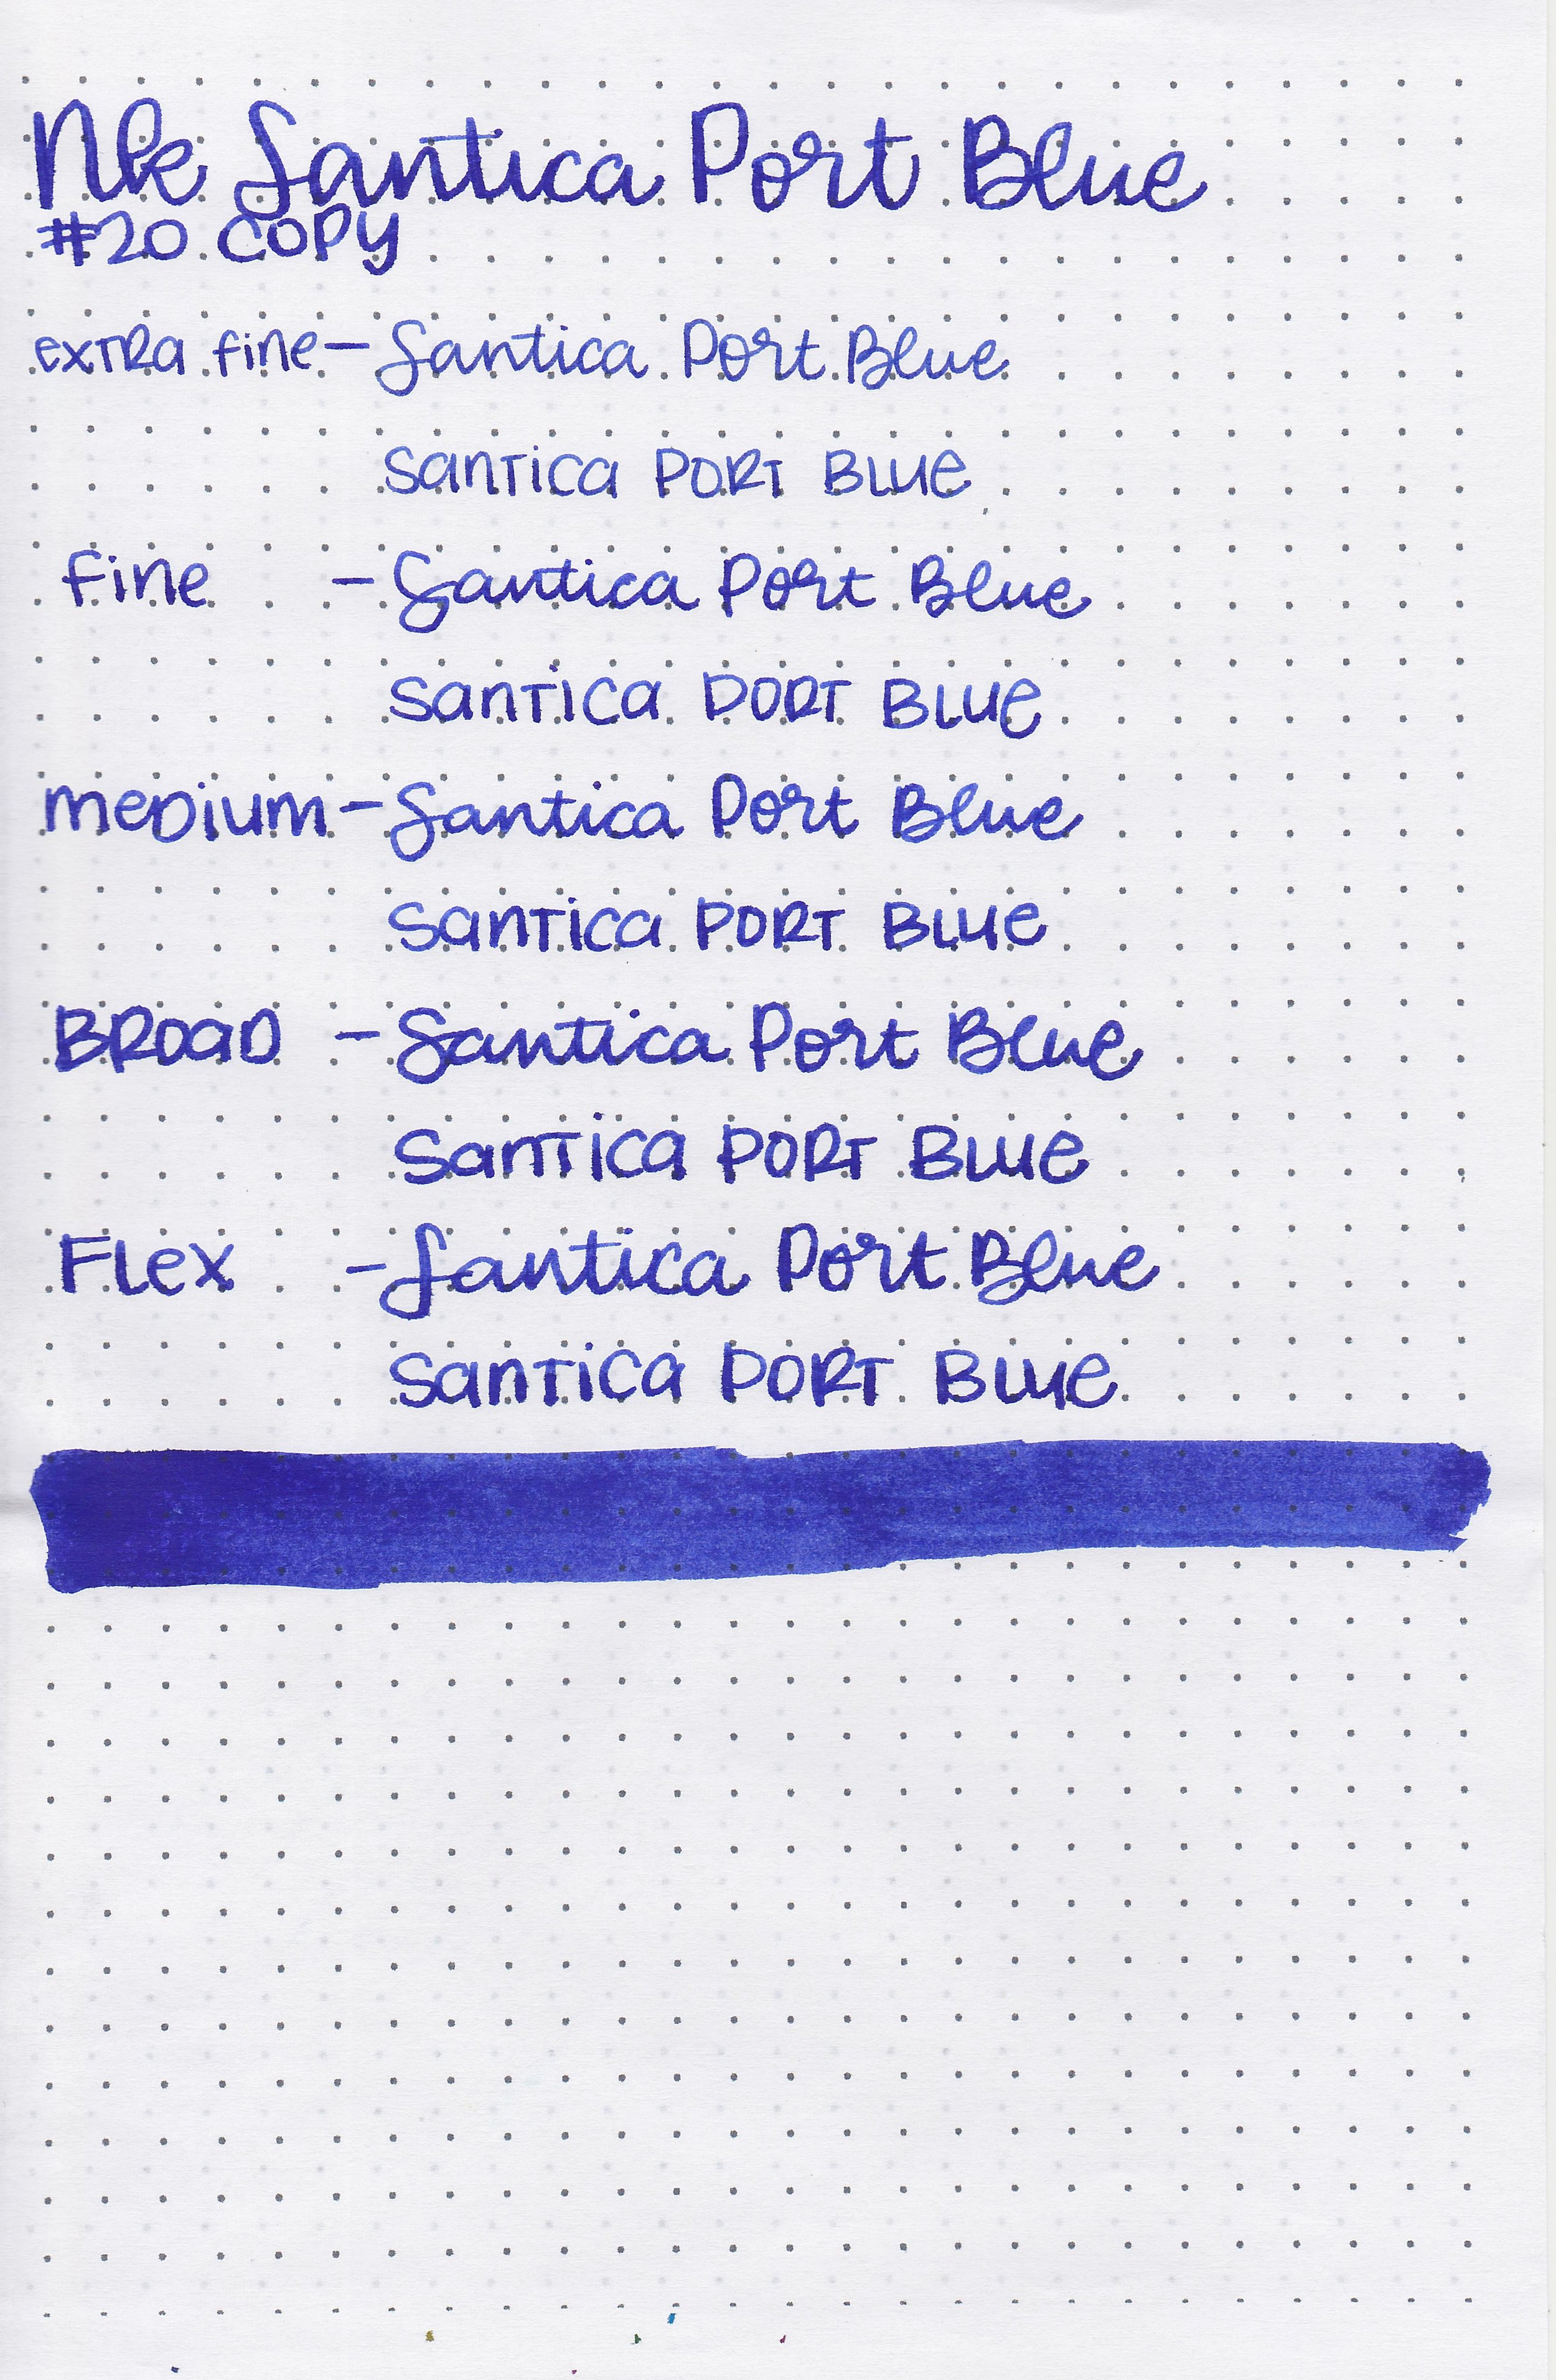 Nk Santica Port Blue
#20 COPY
extra fine - Santica Port Blue
Santica Port Blue
Fine - Santica Port Blue
Santica Port Blue
medium - Santica Port Blue
Santica Port Blue
Broad - Santica Port Blue
Santica Port Blue
Flex - Santica Port Blue
Santica Port Blue